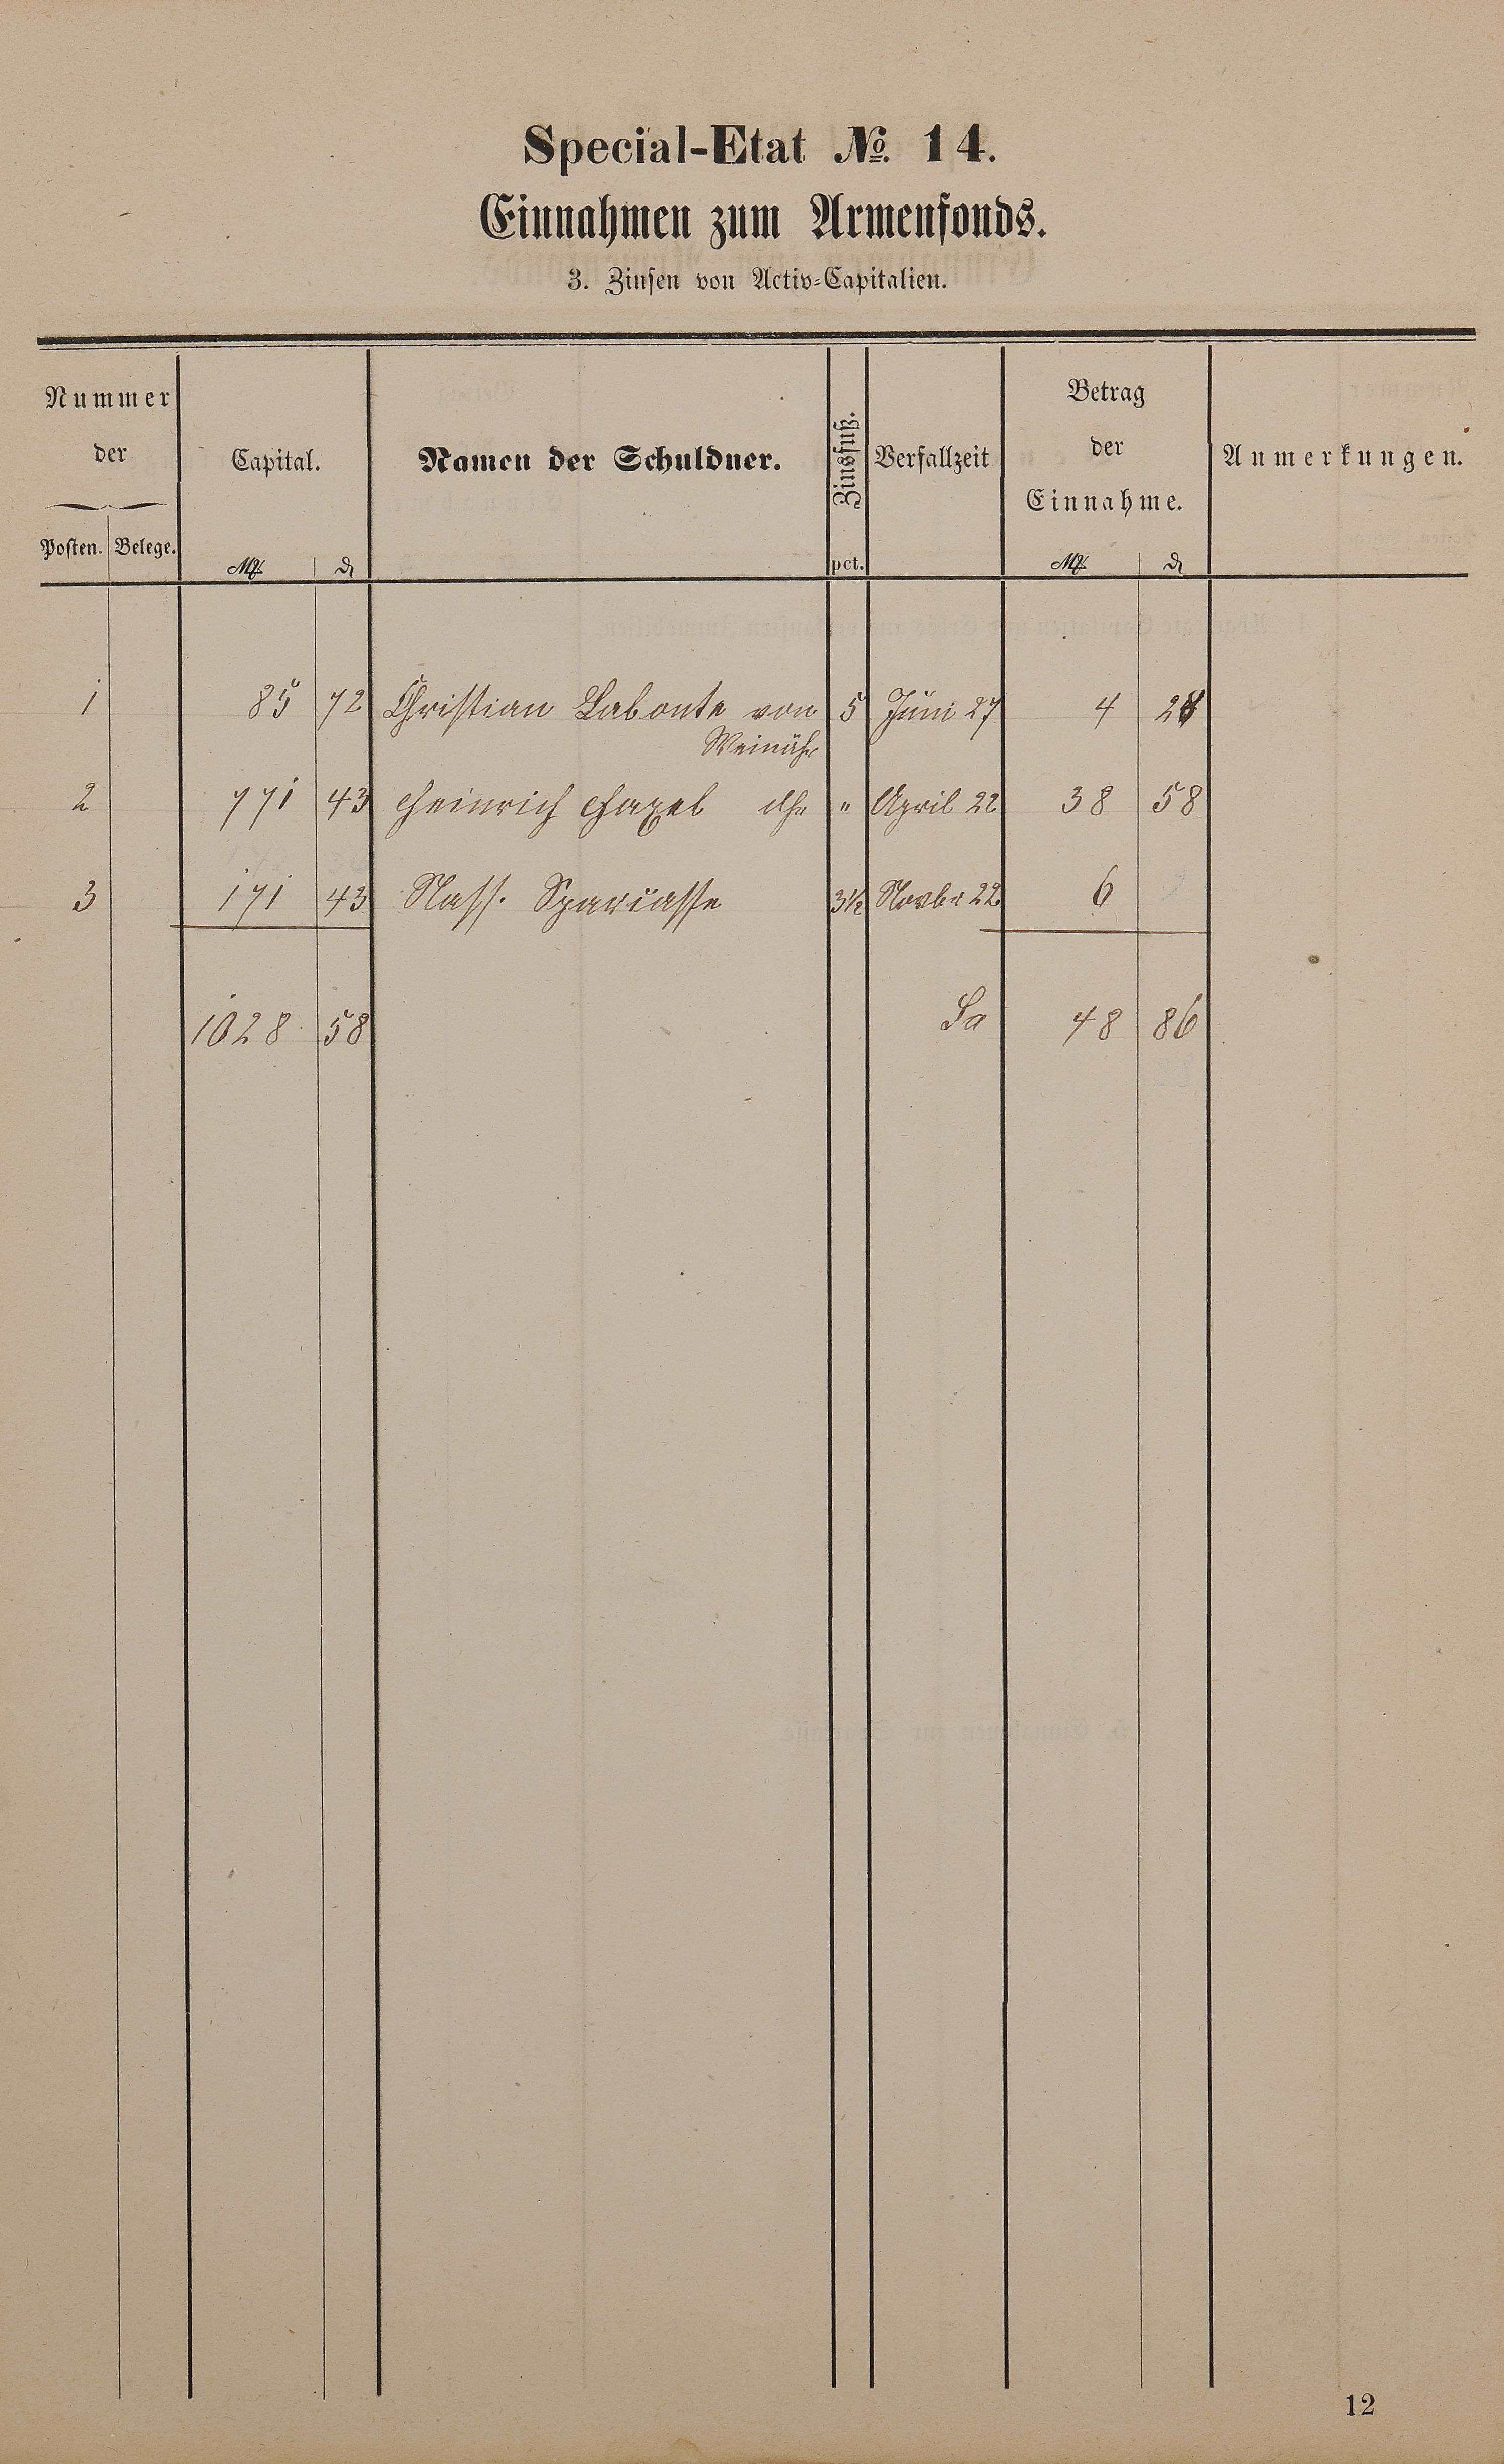 Special-Etat №. 14.
Einnahmen zum Armenfonds.
3. Zinsen von Activ-Capitalien.
Nummer der
Posten. Belege.
Capital.
ℳ ₰
Namen der Schuldner.
Zinsfuß.
pct.
Verfallzeit
Betrag
der
Einnahme.
ℳ ₰
Anmerkungen.
1 85 72 Christian Labonte von 5 Juni 27 4 28
Weinähr
2 771 43 Heinrich " April 22 38 58
3 171 43 Nass. Sparkasse 3½ Novbr 22 6
1028 58 Sa 48 86
12